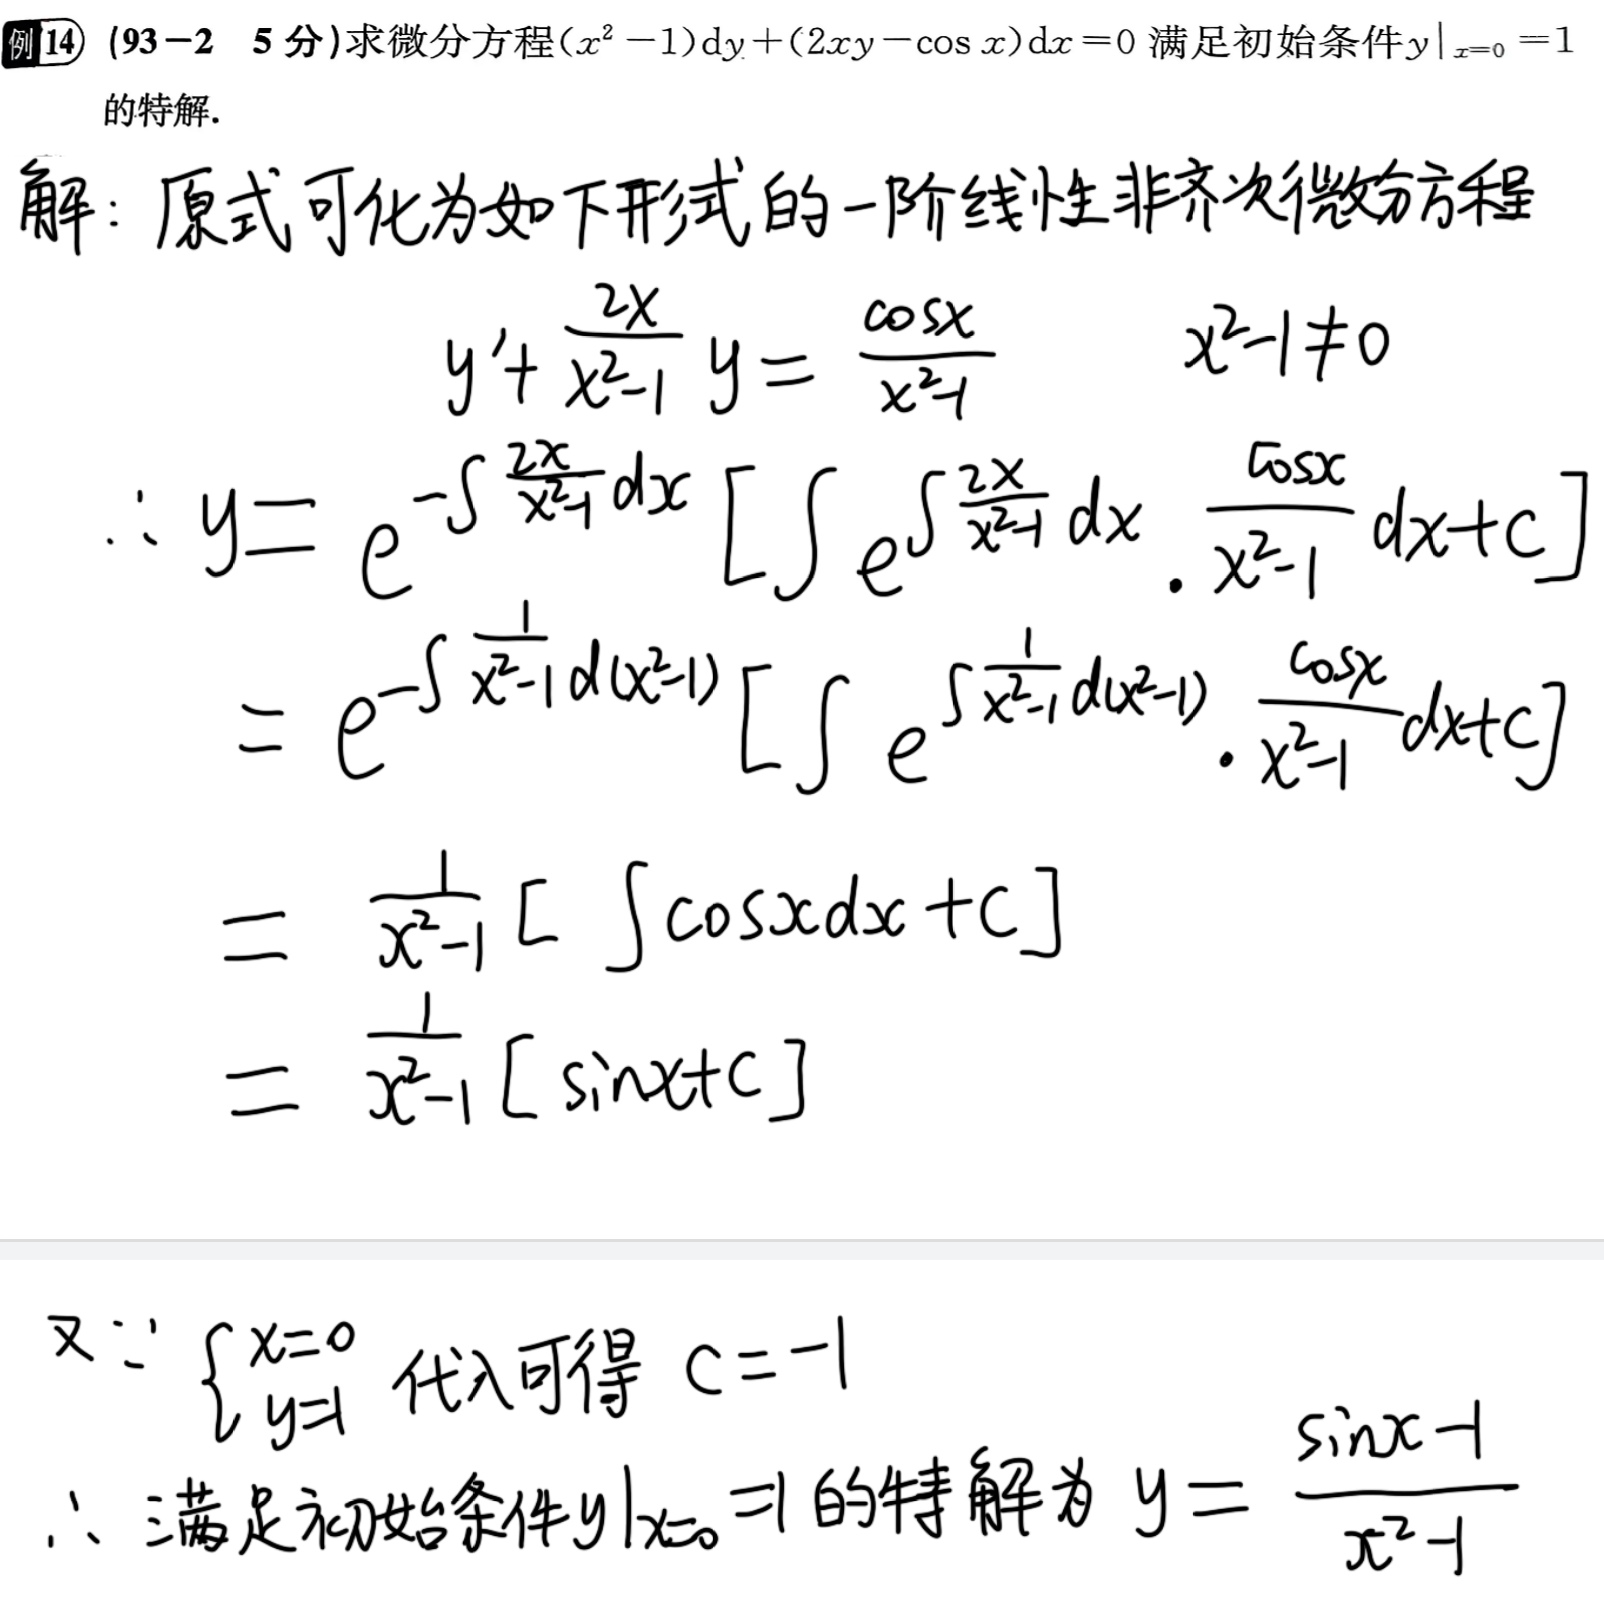 例14 (93-2 5分)求微分方程(x² -1)dy+(2xy-cos x)dx=0 满足初始条件y|ₓ₌₀ =1
的特解.
解: 原式可化为如下形式的一阶线性非齐次微分方程
y'+ \frac{2x}{x²-1} y= \frac{cosx}{x²-1}    x²-1≠0
∴ y= e^{-∫\frac{2x}{x²-1}dx} [∫e^{∫\frac{2x}{x²-1}dx} · \frac{cosx}{x²-1} dx+C]
= e^{-∫\frac{1}{x²-1}d(x²-1)} [∫e^{∫\frac{1}{x²-1}d(x²-1)} · \frac{cosx}{x²-1} dx+C]
= \frac{1}{x²-1} [∫cosxdx+C]
= \frac{1}{x²-1} [sinx+C]
又∵ {x=0 y=1 代入可得 C=-1
∴ 满足初始条件y|ₓ₌₀=1的特解为 y= \frac{sinx-1}{x²-1}